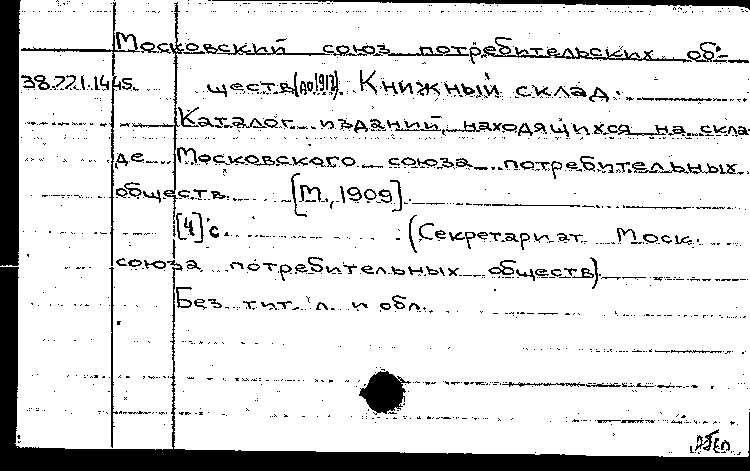 Московский союз потребительских об-
38.221.1445. ществ (до 1917). Книжный склад.
Каталог изданий, находящихся на скла-
де Московского союза потребительных
обществ. [М., 1909].
[4] с. (Секретариат Моск.
союза потребительных обществ)
Без тит. л. и обл.